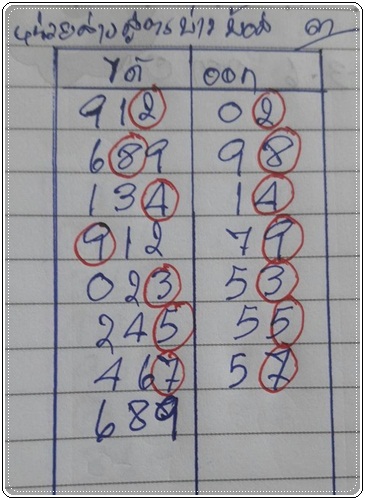 หน่วยล่างสูตรบ่าวน้อย ๓
ได้ ออก
912 02
689 98
134 14
912 79
023 53
245 55
467 57
689